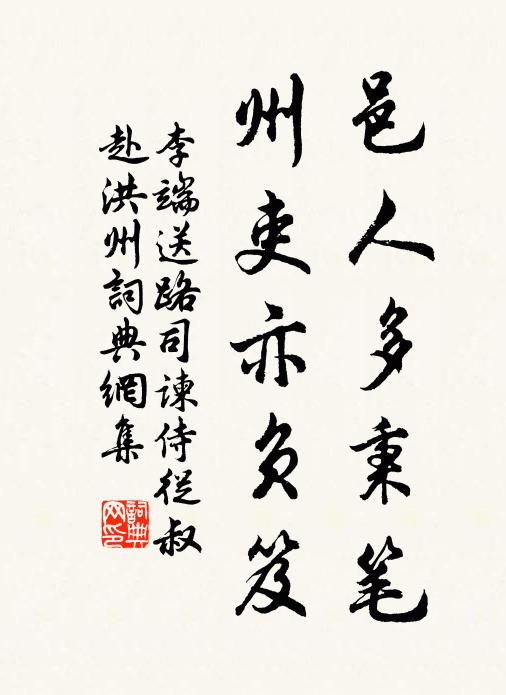 邑人多秉笔
州吏亦负笈
李端送路司諫侍從叔
赴洪州詞典網集
詞典网印